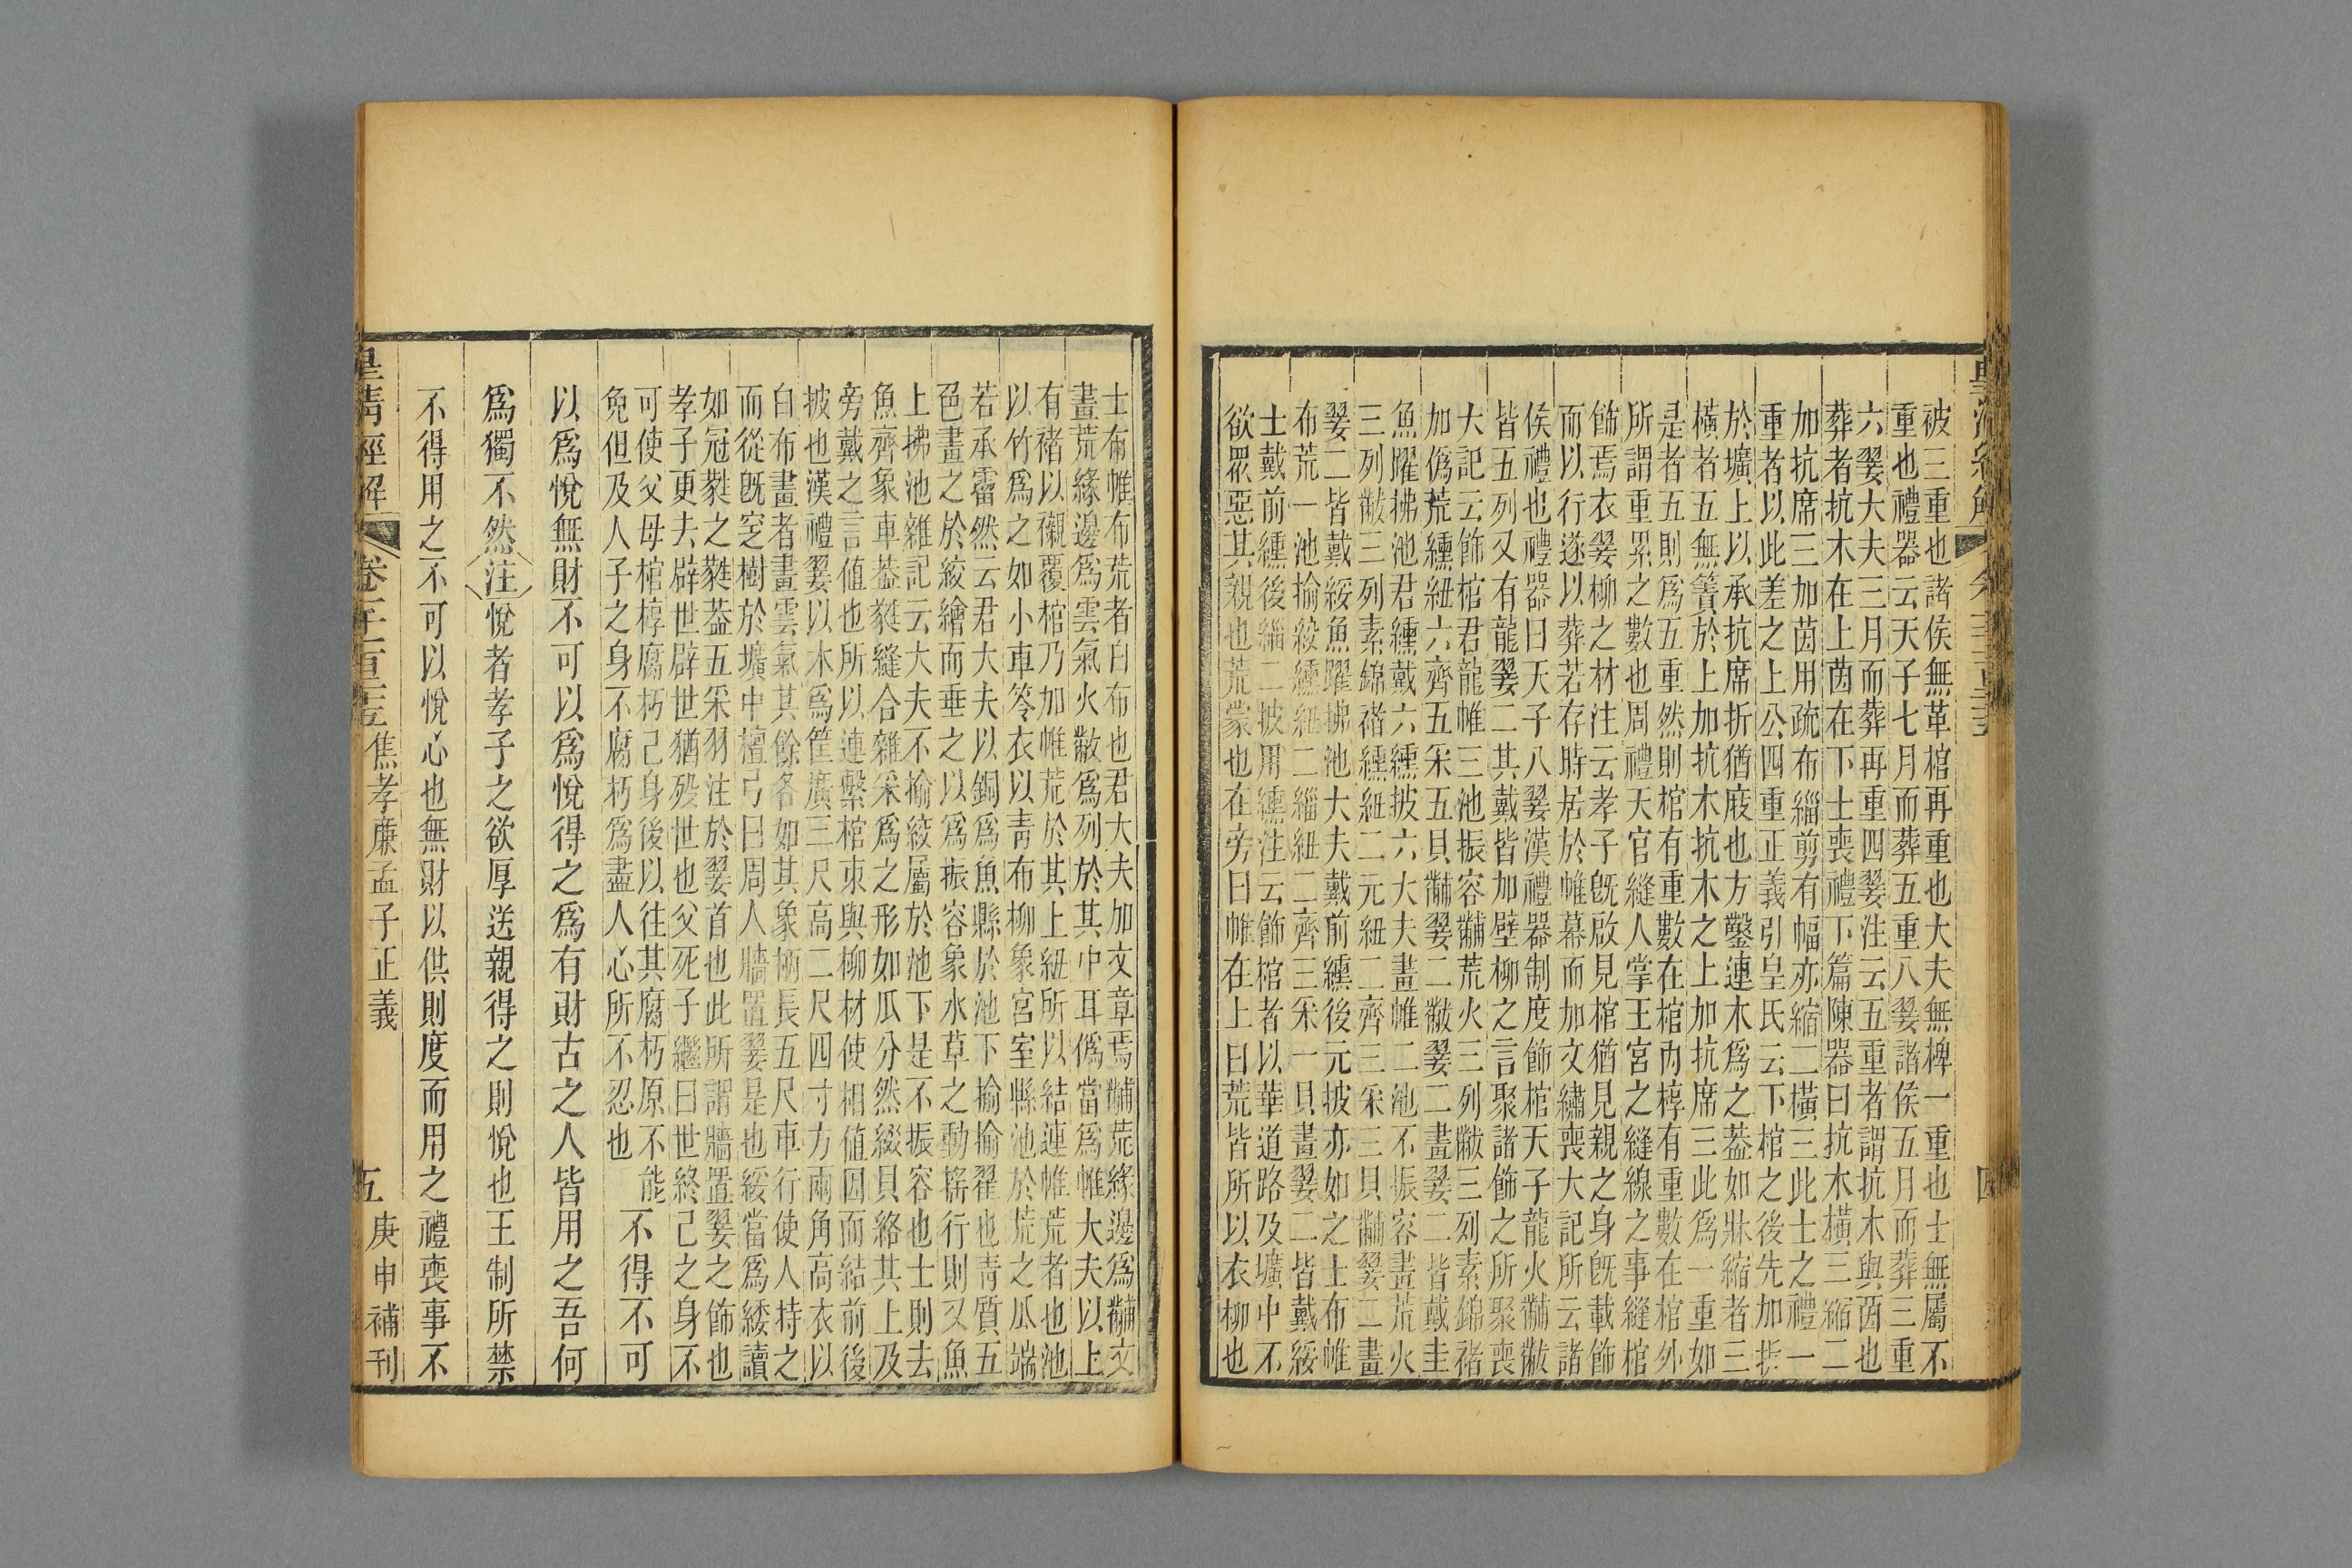 被三重也諸侯無革棺再重也大夫無椑一重也士無屬不
重也禮器云天子七月而葬五重八翣諸侯五月而葬三重
六翣大夫三月而葬再重四翣注云五重者謂抗木與茵也
葬者抗木在上茵在下士喪禮下篇陳器曰抗木橫三縮二
加抗席三加茵用疏布緇剪有幅亦縮二橫三此士之禮一
重者以此差之上公四重正義引皇氏云下棺之後先加折
於壙上以承抗席折猶庪也方鑿連木爲之葢如牀縮者三
橫者五無簀於上加抗木抗木之上加抗席三此爲一重如
是者五則爲五重然則棺有重數在棺內椁有重數在棺外
所謂重累之數也周禮天官縫人掌王宮之縫線之事縫棺
飾焉衣翣柳之材注云孝子旣啟見棺猶見親之身旣載飾
而以行遂以葬若存時居於帷幕而加文繡喪大記所云諸
侯禮也禮器曰天子八翣漢禮器制度飾棺天子龍火黼黻
皆五列又有龍翣二其戴皆加壁柳之言聚諸飾之所聚喪
大記云飾棺君龍帷三池振容黼荒火三列黻三列素錦褚
加僞荒纁紐六齊五采五貝黼翣二黻翣二畫翣二皆戴圭
魚躍拂池君纁戴六纁披六大夫畫帷二池不振容畫荒火
三列黻三列素錦褚纁紐二元紐二齊三采三貝黼翣二畫
翣二皆戴綏魚躍拂池大夫戴前纁後元披亦如之士布帷
布荒一池揄絞纁紐二緇紐二齊三采一貝畫翣二皆戴綏
士戴前纁後緇二披用纁注云飾棺者以華道路及壙中不
欲眾惡其親也荒蒙也在旁曰帷在上曰荒皆所以衣柳也
士布帷布荒者白布也君大夫加文章焉黼荒緣邊爲黼文
畫荒緣邊爲雲氣火黻爲列於其中耳僞當爲帷大夫以上
有褚以襯覆棺乃加帷荒於其上紐所以結連帷荒者也池
以竹爲之如小車笭衣以青布柳象宮室縣池於荒之瓜端
若承霤然云君大夫以銅爲魚縣於池下揄揄翟也青質五
色畫之於絞繒而垂之以爲振容象水草之動搖行則又魚
上拂池雜記云大夫不揄絞屬於池下是不振容也士則去
魚齊象車葢蕤縫合雜采爲之形如瓜分然綴貝絡其上及
旁戴之言値也所以連繫棺束與柳材使相値因而結前後
披也漢禮翣以木爲筐廣三尺高二尺四寸方兩角高衣以
白布畫者畫雲氣其餘各如其象柄長五尺車行使人持之
而從旣窆樹於壙中檀弓曰周人牆置翣是也綏當爲緌讀
如冠蕤之蕤葢五采羽注於翣首也此所謂牆置翣之飾也
孝子更去辟世辟世猶殁世也父死子繼曰世終己之身不
可使父母棺椁腐朽己身後以往其腐朽原不能
免但及人子之身不腐朽爲盡人心所不忍也
不得不可
以爲悅無財不可以爲悅得之爲有財古之人皆用之吾何
爲獨不然注悅者孝子之欲厚送親得之則悅也王制所禁
不得用之不可以悅心也無財以供則度而用之禮喪事不
皇清經解 卷千一百二十三 焦孝廉孟子正義 五 庚申補刊